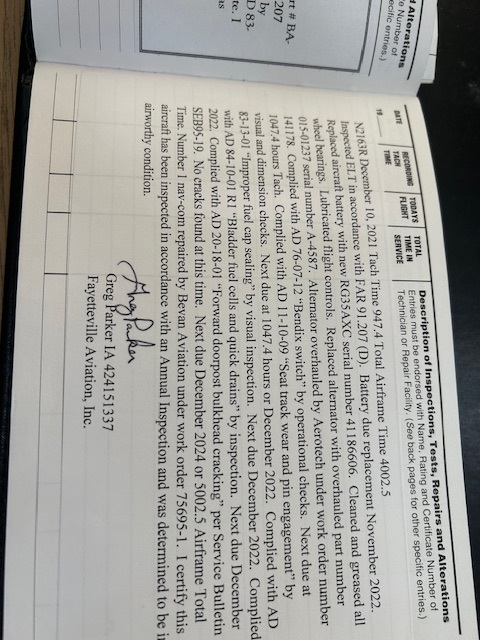 d Alterations
e Number of
ecific entries.)
rt # BA-
207
by
D 83-
te. I
is
DATE
19
RECORDING
TACH
TIME
TODAYS
FLIGHT
TOTAL
TIME IN
SERVICE
Description of Inspections, Tests, Repairs and Alterations
Entries must be endorsed with Name, Rating and Certificate Number of
Technician or Repair Facility. (See back pages for other specific entries.)
N2163R December 10, 2021 Tach Time 947.4 Total Airframe Time 4002.5
Inspected ELT in accordance with FAR 91.207 (D). Battery due replacement November 2022.
Replaced aircraft battery with new RG35AXC serial number 41186606. Cleaned and greased all
wheel bearings. Lubricated flight controls. Replaced alternator with overhauled part number
015-01237 serial number A-4587. Alternator overhauled by Aerotech under work order number
141178. Complied with AD 76-07-12 "Bendix switch" by operational checks. Next due at
1047.4 hours Tach. Complied with AD 11-10-09 "Seat track wear and pin engagement" by
visual and dimension checks. Next due at 1047.4 hours or December 2022. Complied with AD
83-13-01 "Improper fuel cap sealing" by visual inspection. Next due December 2022. Complied
with AD 84-10-01 R1 "Bladder fuel cells and quick drains" by inspection. Next due December
2022. Complied with AD 20-18-01 "Forward doorpost bulkhead cracking" per Service Bulletin
SEB95-19. No cracks found at this time. Next due December 2024 or 5002.5 Airframe Total
Time. Number 1 nav-com repaired by Bevan Aviation under work order 75695-1. I certify this
aircraft has been inspected in accordance with an Annual Inspection and was determined to be i
airworthy condition.
Greg Parker
Greg Parker IA 424151337
Fayetteville Aviation, Inc.